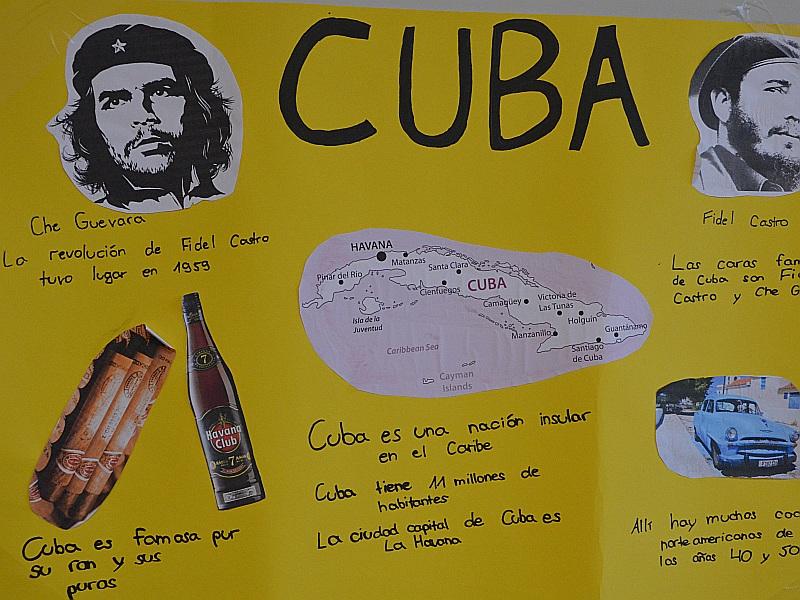 CUBA
Che Guevara
La revolución de Fidel Castro
tuvo lugar en 1959
Fidel Castro
Las caras fam
de Cuba son Fi
Castro y Che G
HAVANA
Matanzas
Pinar del Rio
Santa Clara
Cienfuegos
CUBA
Isla de la
Juventud
Camagüey
Victoria de
Las Tunas
Holguín
Manzanillo
Guantánamo
Santiago
de Cuba
Caribbean Sea
Cayman
Islands
7
Havana
Club
7
Cuba es famosa pur
su ron y sus
puros
Cuba es una nación insular
en el Caribe
Cuba tiene 11 millones de
habitantes
La ciudad capital de Cuba es
La Havana
Allí hay muchos coc
norteamericanos de
los años 40 y 50